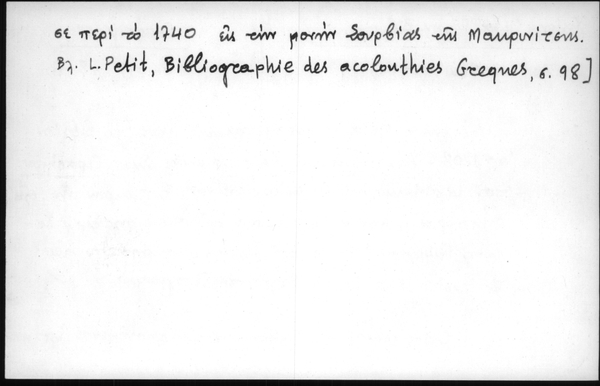 σε περί το 1740 εις την μονήν Σουρβίας της Μακρυνίτσης.
Βλ. L. Petit, Bibliographie des acolouthies Grecques, σ. 98]